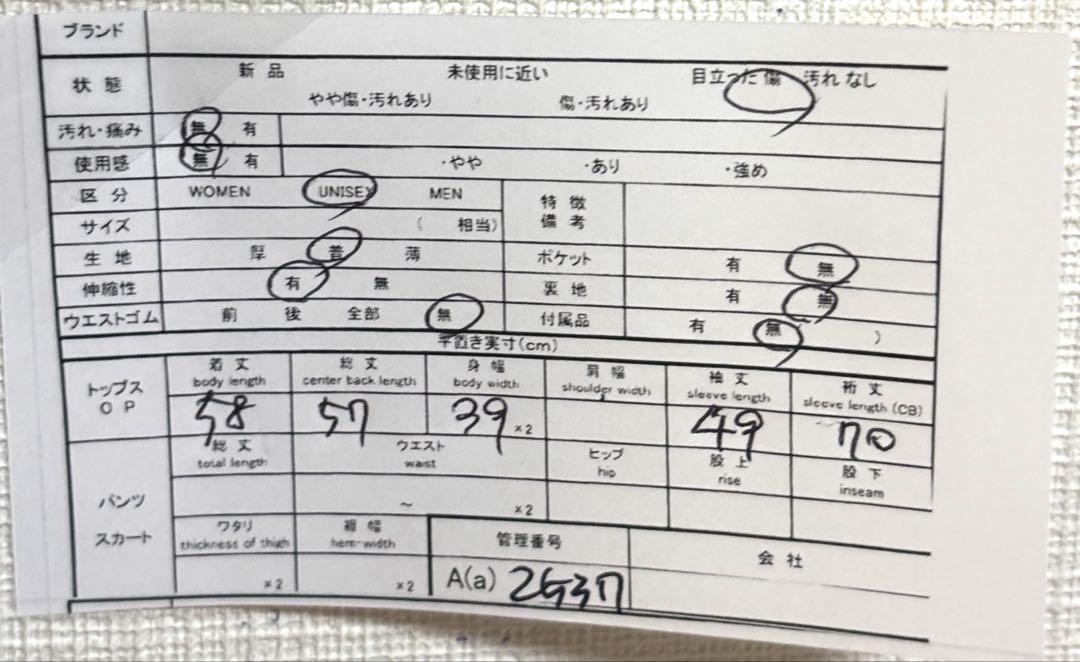 ブランド
状態 新品 未使用に近い 目立った傷 汚れなし
やや傷・汚れあり 傷・汚れあり
汚れ・痛み 無 有
使用感 無 有 ・やや ・あり ・強め
区分 WOMEN UNISEX MEN 特徴
備考
サイズ ( 相当)
生地 厚 普 薄 ポケット 有 無
伸縮性 有 無 裏地 有 無
ウエストゴム 前 後 全部 無 付属品 有 無 )
平置き実寸(cm)
トップス
OP
着丈 総丈 身幅 肩幅 袖丈 裄丈
body length center back length body width shoulder width sleeve length sleeve length (CB)
58 57 39 ×2 49 70
パンツ
スカート
総丈 ウエスト ヒップ 股上 股下
total length waist hip rise inseam
~ ×2
ワタリ 裾幅 管理番号 会社
thickness of thigh hem-width
×2 ×2 A(a) 2G37